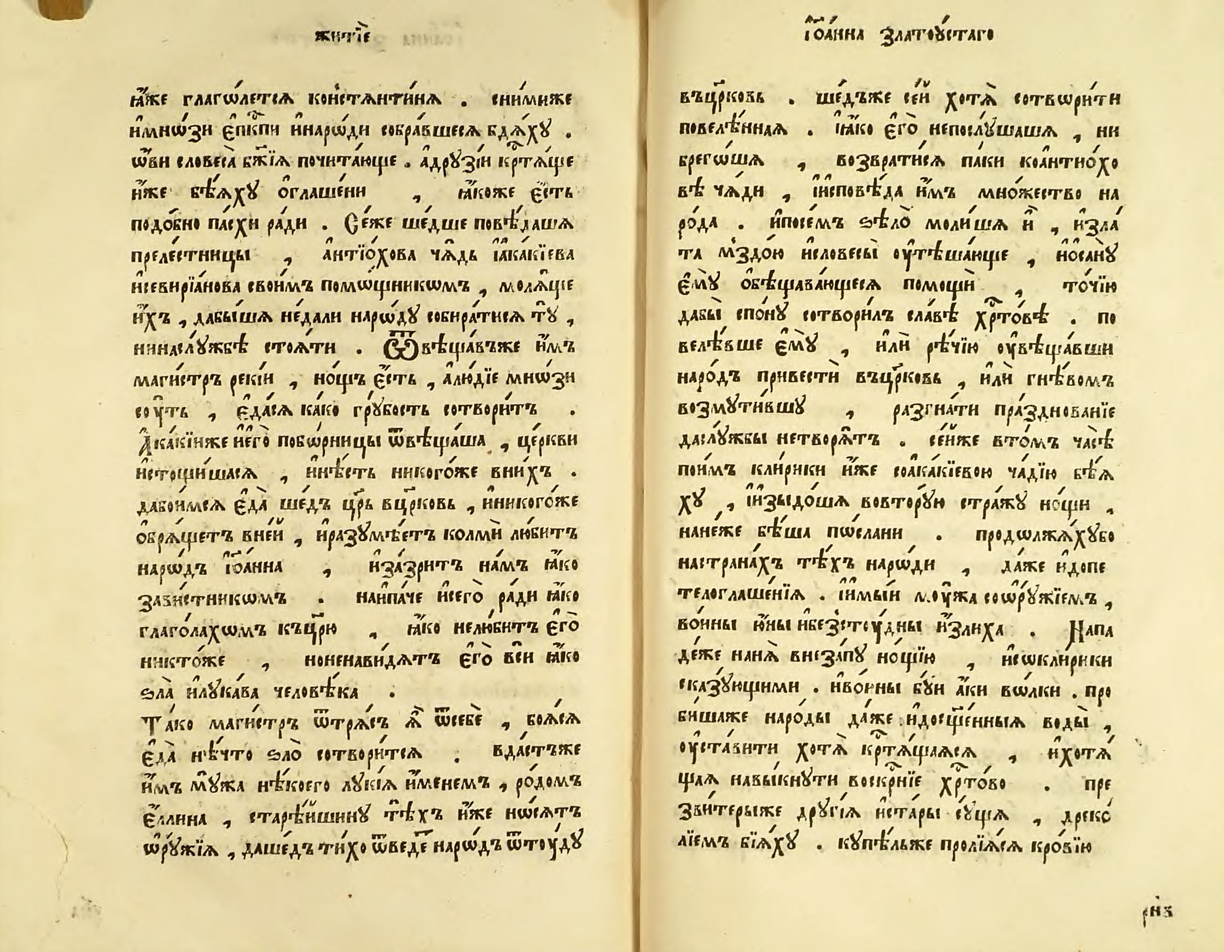 житїе
ꙗ҆́же глаго́летсѧ ко́нстѧнти́нѧ . сни́миже
и҆мно́зи є҆пⷭ҇кпи и҆наро́ди собра́вшесѧ бдѧ́хꙋ .
ѡ҆́ви словеса̀ бж҃їѧ почита́юще . а҆дрꙋзі́и кр҇тѧ́ще
и҆̀же бѣ́ѧхꙋ ѻ҆глаше́ни , ꙗ҆́коже є҆́сть
подо́бно па́схи ра́ди . Се́же ше́дше повѣ́дашѧ
преле́стницы , а҆нтїо́хова ча́дь і҆ака́кїева
и҆севирїа́нова свои́мъ помощнико́мъ , молѧ́ще
и҆́хъ , дабы́шѧ не́дали наро́дꙋ собира́тисѧ тꙋ̀ ,
нинаслꙋ́жбѣ стоѧ́ти . Ѿвѣща́въже и҆̀мъ
маги́стръ реки́и , но́щь є҆́сть , а҆лю́дїе мно́зи
соꙋ́ть , є҆да́сѧ ка́ко грꙋ́бость сотвори́тъ .
А҆ка́кїиже и҆є҆го̀ побо́рницы ѿвѣща́ша , це́ркви
и҆стощи́шасѧ , и҆нѣ́сть никого́же вни́хъ .
дабои́мсѧ є҆да̀ ше́дъ цр҃ь вцр҃ковь , и҆никого́же
обрѧ́щетъ вне́й , и҆разꙋмѣ́етъ колмѝ лю́битъ
наро́дъ і҆ѻа́нна , и҆за́зритъ на́мъ ꙗ҆́ко
зави́стникомъ . наи́паче и҆сего̀ ра́ди ꙗ҆́ко
глаго́лахомъ къцр҃ю , ꙗ҆́ко нелю́битъ є҆го̀
никто́же , ноненави́дѧтъ є҆го̀ всѝ ꙗ҆́ко
ѕла̀ и҆лꙋка́ва человѣ́ка .
Та́ко маги́стръ ѿтрѧ́съ ѧ҆̀ ѿсебѐ , боѧ́сѧ
є҆да̀ нѣ́что ѕло̀ сотвори́тсѧ . вда́стъже
и҆̀мъ мꙋ́жа нѣ́коего лꙋкі́ѧ и҆́менемъ , ро́домъ
є҆́ллина , старѣ́йшинꙋ тѣ́хъ и҆́же но́сѧтъ
ѡ҆рꙋ́жїѧ , даше́дъ ти́хо ѿведе́ наро́дъ ѿтоꙋ́дꙋ
І҆ѻа́нна Златоꙋ́стаго
въцр҃ковь . ше́дъже се́й хотѧ̀ сотвори́ти
повелѣ́ннаѧ . і҆ꙗ҆́ко є҆го̀ непослꙋ́шашѧ , ни
брего́шѧ , возврати́сѧ па́ки коантио́хо
вѣ ча́ди , і҆исповѣ́да и҆̀мъ мно́жество на
ро́да . и҆посе́мъ ѕѣло̀ моли́шѧ и҆̀ , и҆зла́
та мздо́ю и҆словесы̀ оу҆тѣша́юще , и҆ѻ҆са́нꙋ
є҆мꙋ̀ обѣщава́ющесѧ по́мощи , то́чїю
дабы̀ спо́нꙋ сотвори́лъ сла́вѣ хр҇то́вѣ . по
велѣ́вше є҆мꙋ̀ , и҆лѝ рѣ́чїю оу҆вѣща́вши
наро́дъ привестѝ въцр҃ковь , и҆лѝ гнѣ́вомъ
возмꙋти́вшꙋ , разгна́ти пра́зднованїе
даслꙋ́жбы нетворѧ́тъ . се́йже вто́мъ ча́сѣ
пои́мъ кли́рики и҆̀же соака́кїевою ча́дїю бѣ́ѧ
хꙋ , і҆изыдо́шѧ вовторꙋ́ю стра́жꙋ но́щи ,
нане́же бѣ́ша по́слани . продолжѧ́хꙋбо
настрана́хъ тѣ́хъ наро́ди , да́же и҆допе
телоглаше́нїѧ . і҆и҆мы́й моꙋ́жа соѡрꙋ́жїемъ ,
во́ины ю҆́ны и҆безстоꙋ́дны и҆зли́ха . Напа
де́же нанѧ̀ внеза́пꙋ но́щїю , и҆сокли́рики
ска́зꙋющими . и҆во́ины бꙋ́и а҆́ки во́лки . про
бива́же наро́ды да́же и҆досщ҃е́нныѧ воды̀ ,
оу҆ста́вити хотѧ̀ кр҇тѧ́щаѧсѧ , и҆хотѧ́
щаѧ навы́кнꙋти воскр҇нїе хр҇то́во . пре
зви́терыже дрꙋгі́ѧ и҆ста́ры сꙋ́щѧ , дреко́
лїемъ бїѧ́хꙋ . кꙋпѣ́льже пролїѧ́сѧ кро́вїю
рнз